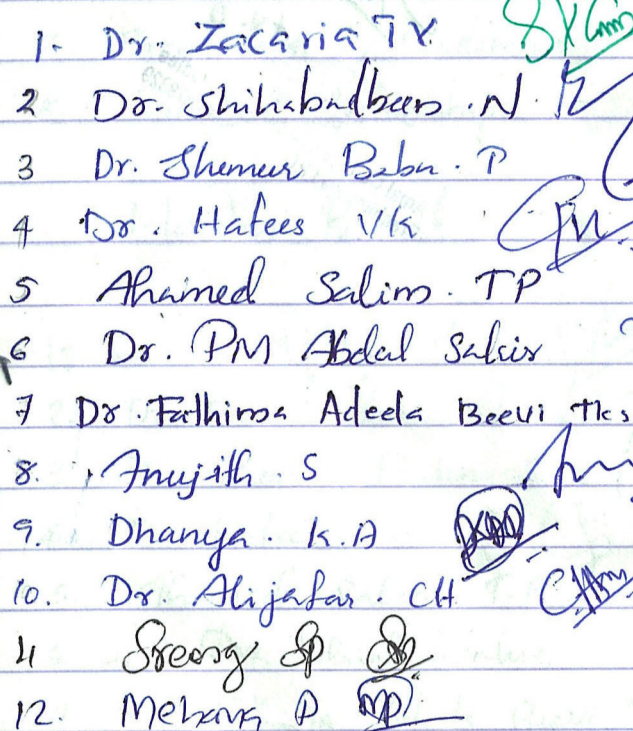 1- Dr. Zacaria TV
2 Dr. Shihabudheen . N .
3 Dr. Shemeer Babu . P
4 Dr . Hafees VK
5 Ahamed Salim . TP
6 Dr. PM Abdul Sakir
7 Dr . Fathima Adeela Beevi tks
8. Anujith . S
9. Dhanya . K.A
10. Dr. Alijafar . CH
11 Sreeng SP
12. P MP